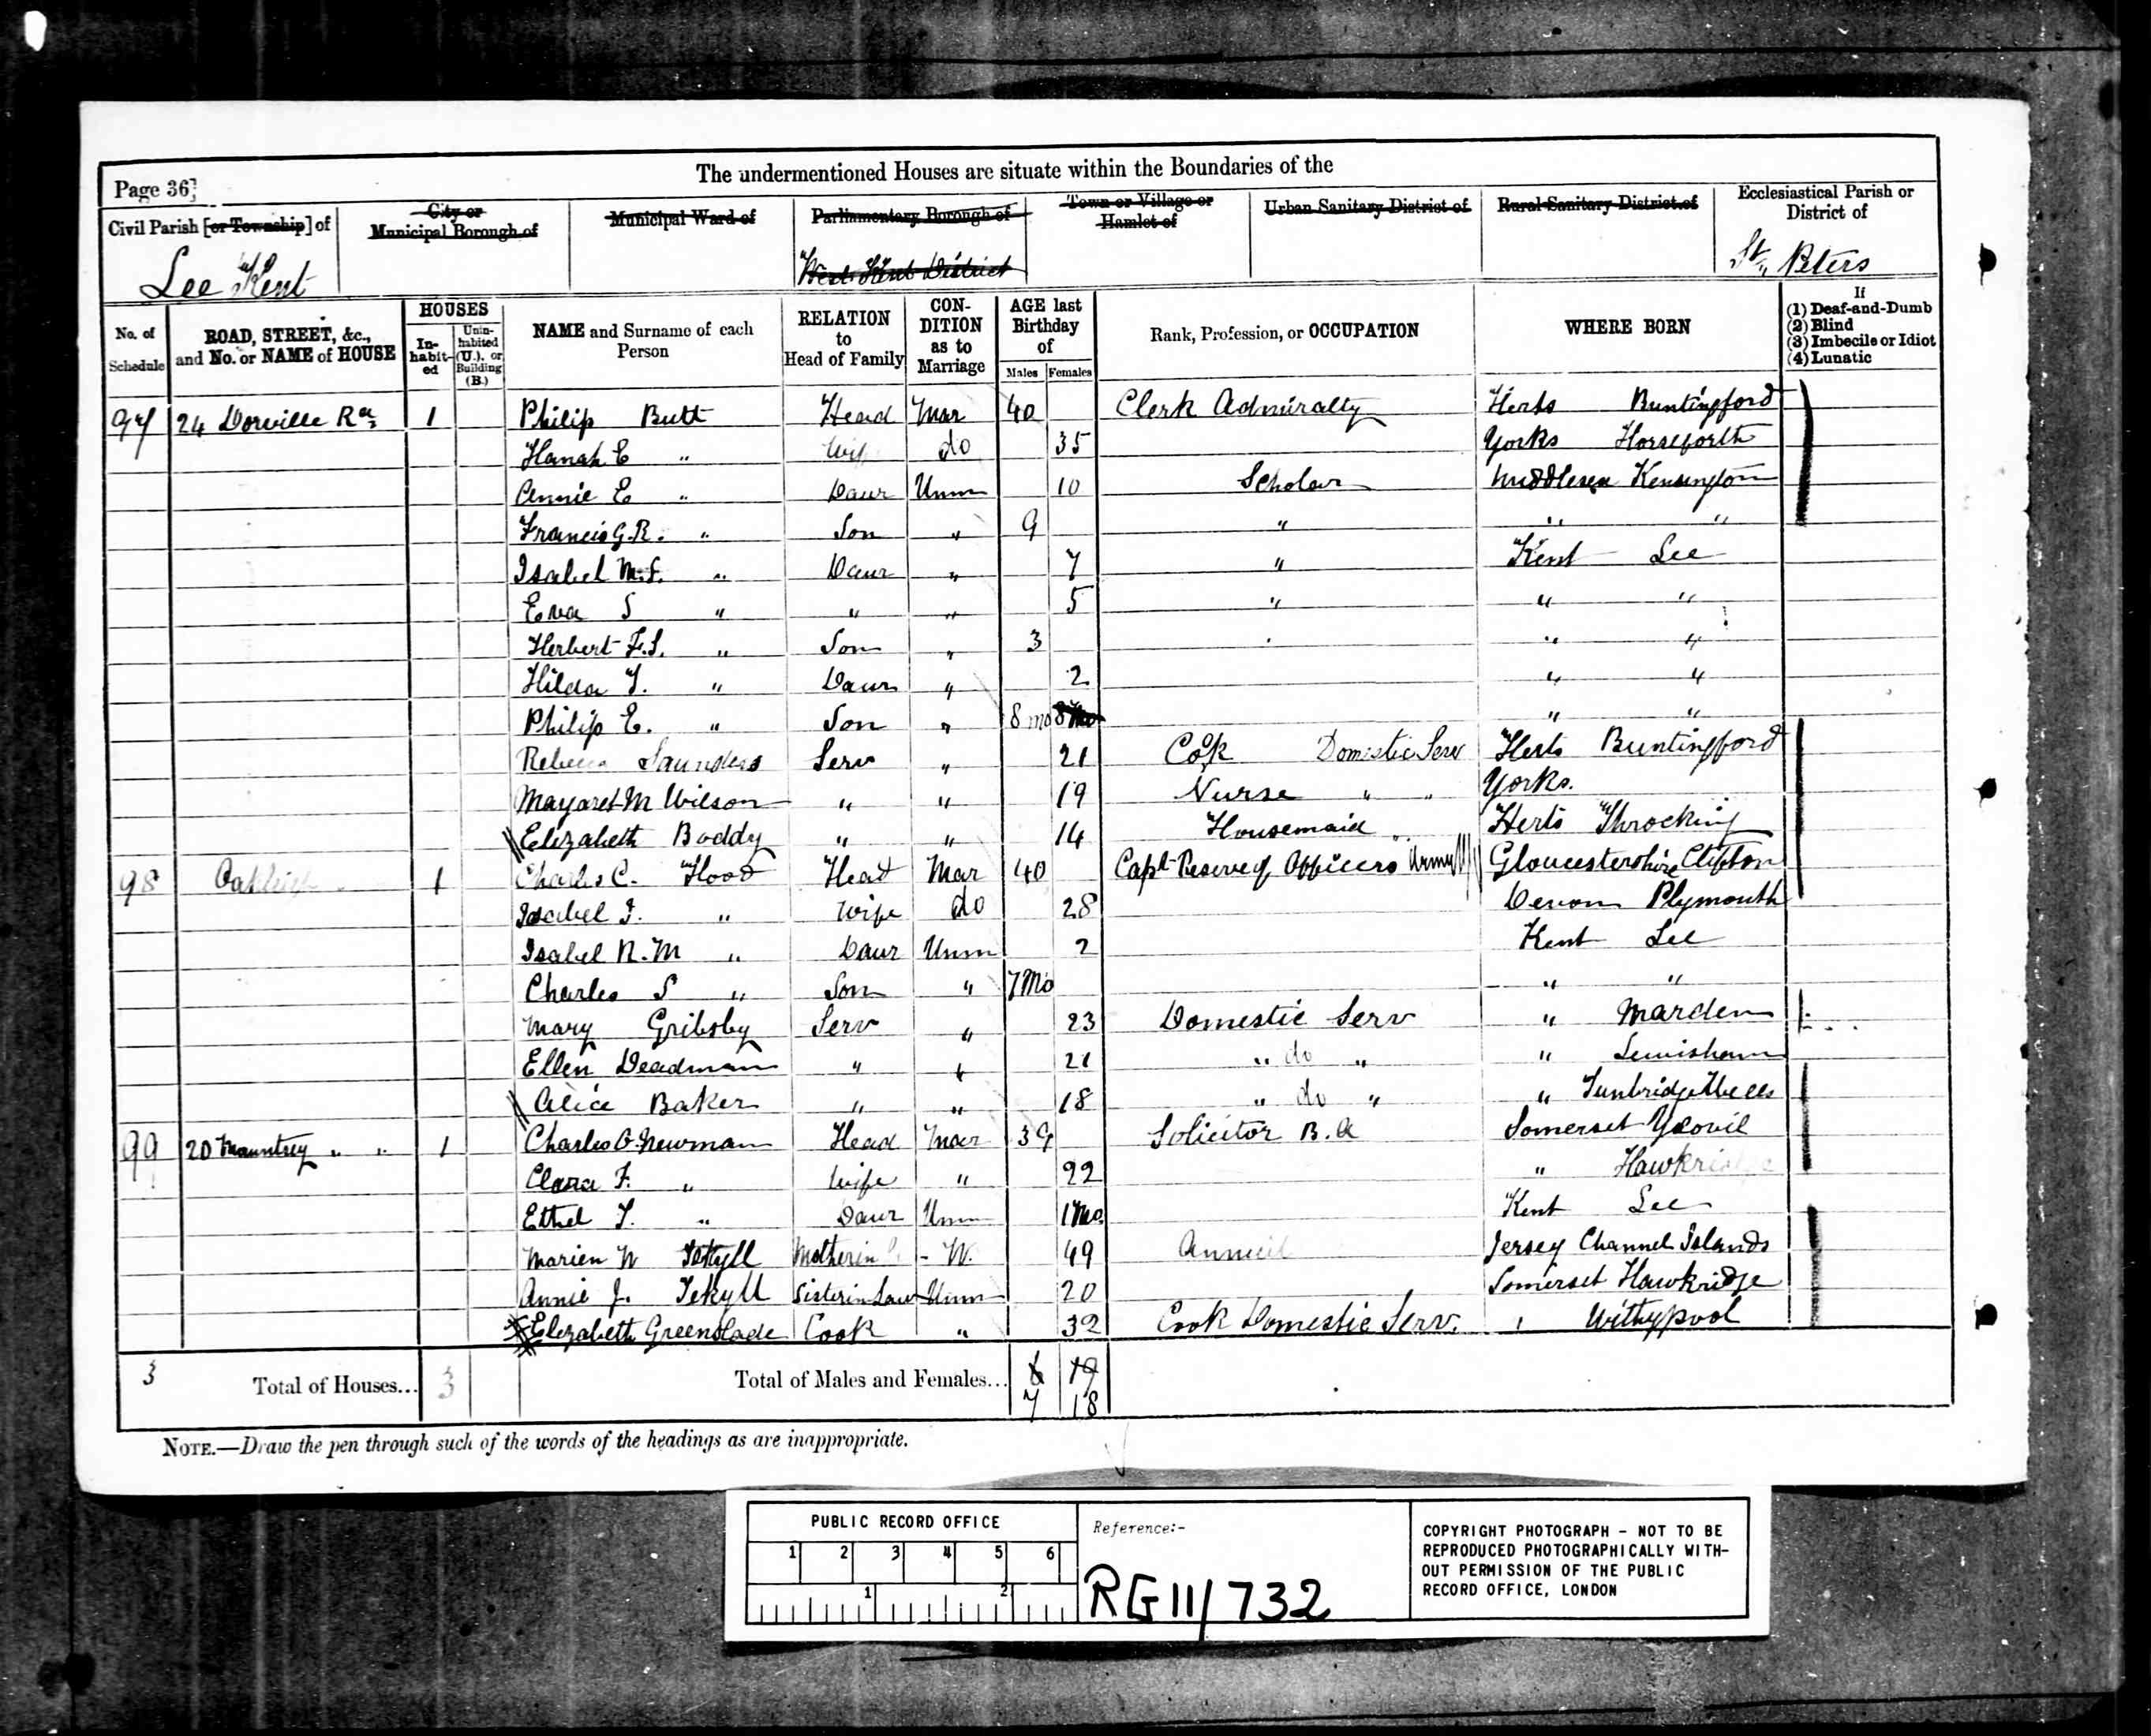 The undermentioned Houses are situate within the Boundaries of the
Page 36]
Civil Parish [or Township] of
City or Municipal Borough of
Municipal Ward of
Parliamentary Borough of
Town or Village or Hamlet of
Urban Sanitary District of
Rural Sanitary District of
Ecclesiastical Parish or District of
Lee Kent
West Kent District
St. Peters
No. of Schedule
ROAD, STREET, &c., and No. or NAME of HOUSE
HOUSES
In-habit-ed
Unin-habited (U.), or Building (B.)
NAME and Surname of each Person
RELATION to Head of Family
CON-DITION as to Marriage
AGE last Birthday of
Males Females
Rank, Profession, or OCCUPATION
WHERE BORN
If
(1) Deaf-and-Dumb
(2) Blind
(3) Imbecile or Idiot
(4) Lunatic
97 24 Dorville Rd 1 Philip Butt Head Mar 40 Clerk Admiralty Herts Buntingford
Hanah E " Wife do 35 Yorks Horseforth
Annie E " Daur Unm 10 Scholar Middlesex Kensington
Francis G.R. " Son " 9 " " "
Isabel M.S. " Daur " 7 " Kent Lee
Eva S " " " 5 " " "
Herbert F.S. " Son " 3 " "
Hilda Y. " Daur " 2 " "
Philip E. " Son " 8 mo 8 Mo " "
Rebecca Saunders Serv " 21 Cook Domestic Serv Herts Buntingford
Magaret M Wilson " " 19 Nurse " " Yorks.
Elizabeth Boddy " " 14 Housemaid " Herts Throcking
98 1 Charles C. Hood Head Mar 40 Capt Reserve of Officers Army Gloucestershire Clifton
Isabel J. " Wife do 28 Devon Plymouth
Isabel R. M " Daur Unm 2 Kent Lee
Charles S " Son " 7 Mo " "
Mary Gribsby Serv " 23 Domestic Serv " Marden
Ellen Deadman " " 21 " do " " Lewisham
Alice Baker " " 18 " do " " Tunbridge Wells
99 20 " " 1 Charles O. Newman Head Mar 39 Solicitor B.A Somerset Yeovil
Clara F. " Wife " 22 " Hawkridge
Ethel Y. " Daur Unm 1 Mo Kent Lee
Marien W Jekyll Mother in - W. 49 Jersey Channel Islands
Annie J. Jekyll Sister in Law Unm 20 Somerset Hawkridge
Elizabeth Greenslade Cook " 32 Cook Domestic Serv. " Withypool
3 Total of Houses... 3 Total of Males and Females... 6 19
7 18
NOTE.—Draw the pen through such of the words of the headings as are inappropriate.
PUBLIC RECORD OFFICE
1 2 3 4 5 6
1 2
Reference:-
RG 11/732
COPYRIGHT PHOTOGRAPH - NOT TO BE
REPRODUCED PHOTOGRAPHICALLY WITH-
OUT PERMISSION OF THE PUBLIC
RECORD OFFICE, LONDON